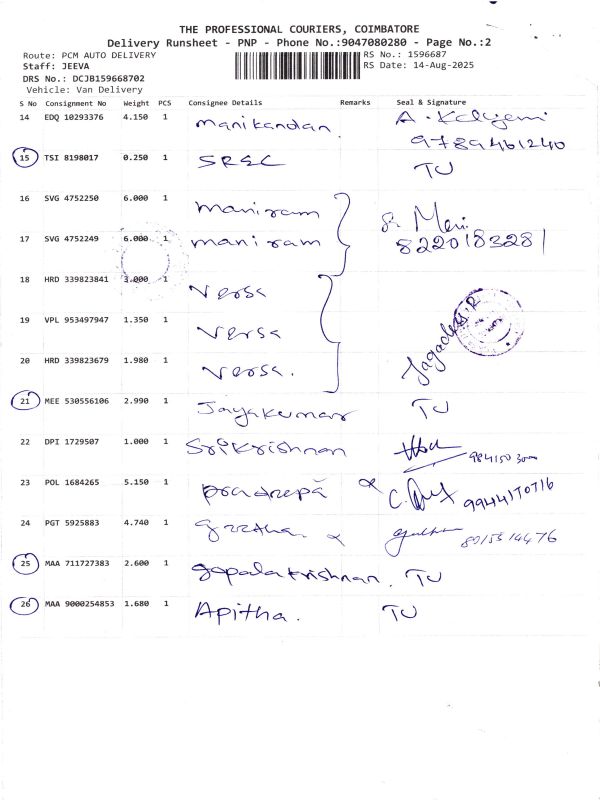 THE PROFESSIONAL COURIERS, COIMBATORE
Delivery Runsheet - PNP - Phone No.:9047080280 - Page No.:2
Route: PCM AUTO DELIVERY RS No.: 1596687
Staff: JEEVA RS Date: 14-Aug-2025
DRS No.: DCJB159668702
Vehicle: Van Delivery
S No Consignment No Weight PCS Consignee Details Remarks Seal & Signature
14 EDQ 10293376 4.150 1 Manikandan. A. Kalyani
9789461240
15 TSI 8198017 0.250 1 SREC TU
16 SVG 4752250 6.000 1 maniram
17 SVG 4752249 6.000 1 maniram 8220183281
18 HRD 339823841 3.000 1 Versa
19 VPL 953497947 1.350 1 Versa
20 HRD 339823679 1.980 1 Versa. Jagadess.R
21 MEE 530556106 2.990 1 Jayakumar TU
22 DPI 1729507 1.000 1 Srikrishnan
23 POL 1684265 5.150 1 9944170716
24 PGT 5925883 4.740 1 geetha.
25 MAA 711727383 2.600 1 gopalakrishnan. TU
26 MAA 9000254853 1.680 1 Apitha. TU